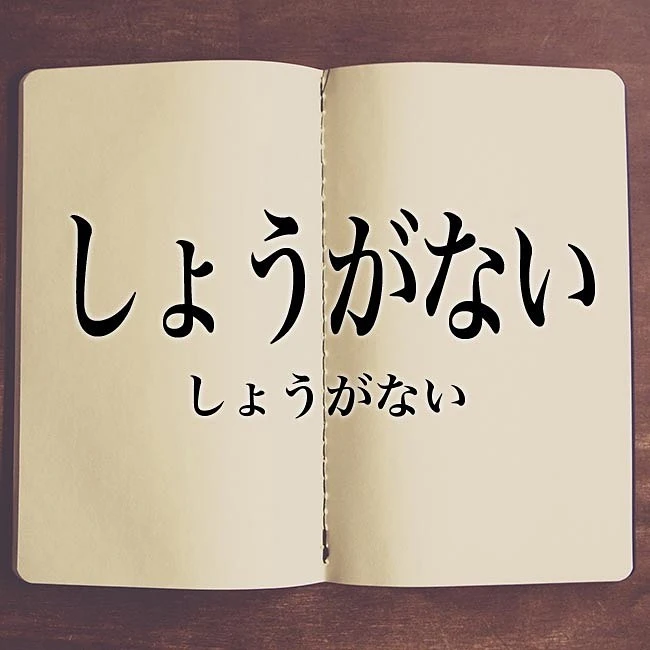 しょうがない
しょうがない